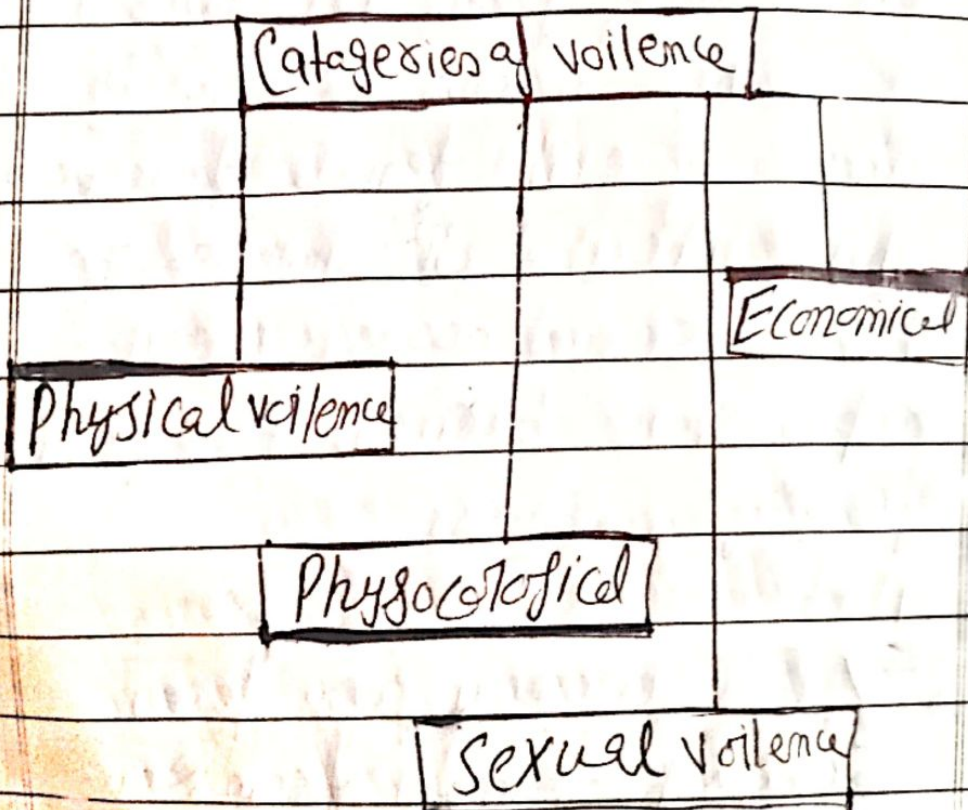 Catageries of voilence
Economical
Physical voilence
Physocological
Sexual voilence